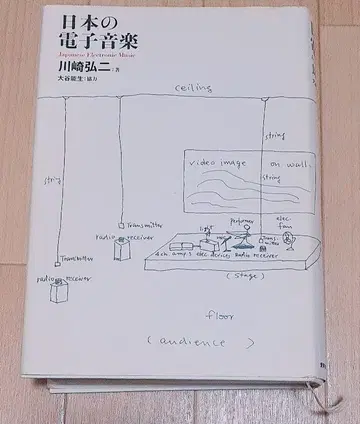 日本の
電子音楽
Japanese Electronic Music
川崎弘二|著
大谷能生|協力
ceiling
string
string
video image on wall
string
performer
elec
fan
light
Transmitter
radio receiver
Trans-
mitter
4ch. amp's elec devices radio receiver
Transmitter
radio receiver
(stage)
floor
(audience)